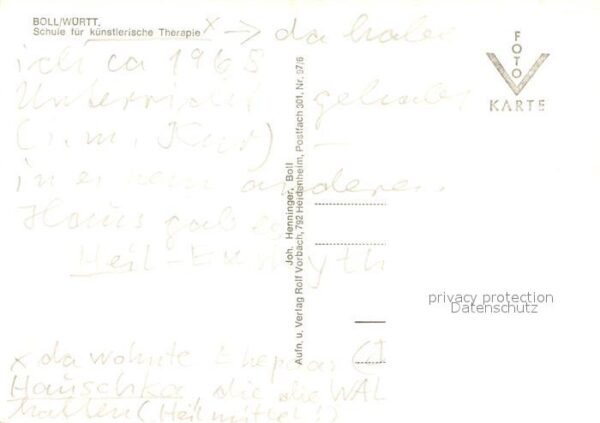 BOLL/WÜRTT.
Schule für künstlerische Therapie x → da habe
ich ca 1965
Unterricht gehabt
(i. m. Kur) –
in einem anderen
Haus gab es
Heil-Eurhyth
x da wohnte Ehepaar
Hauschka, die die WAL
hatten (Heilmittel!)
Joh. Henninger, Boll
Aufn. u. Verlag Rolf Vorbach, 792 Heidenheim, Postfach 301, Nr. 97/6
FOTO
KARTE
privacy protection
Datenschutz